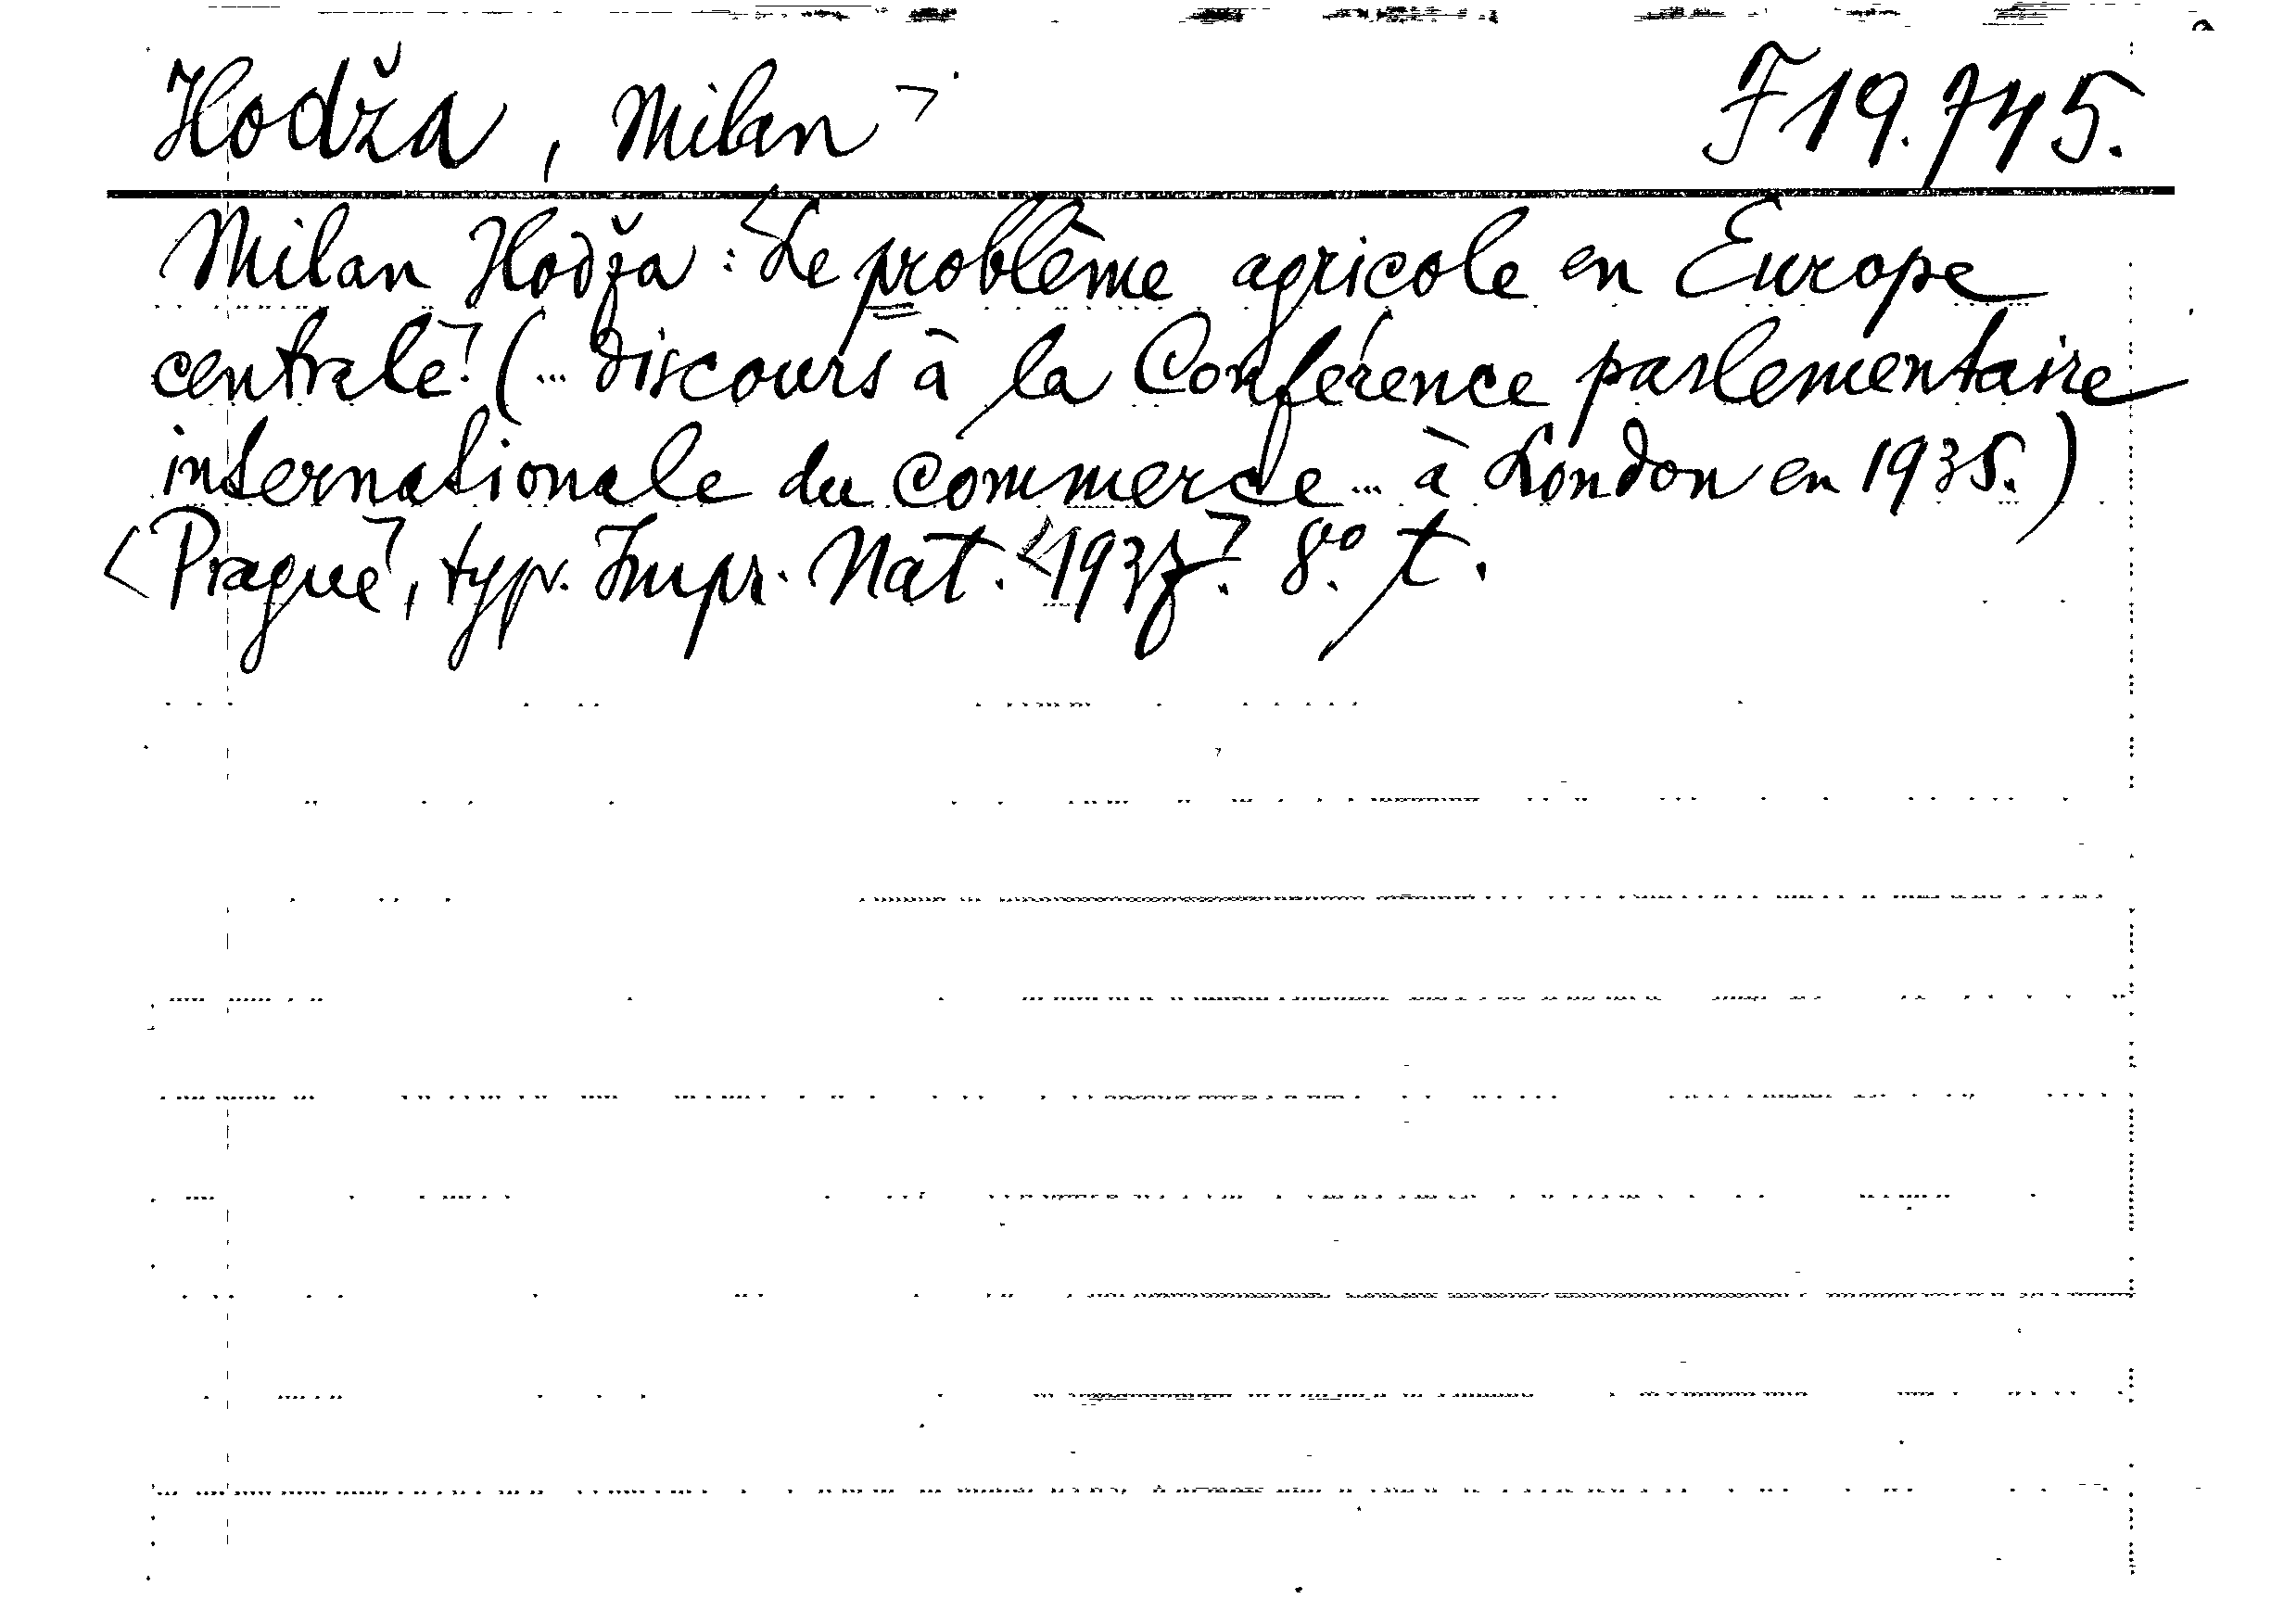 Hodža, Milan ¬ F 19.745.
Milan Hodža: <Le problème agricole en Europe
centrale¬. (... discours à la Conférence parlementaire
internationale du commerce... à London en 1935.)
<Prague¬, typ. Impr. Nat. <1937¬. 8° t.